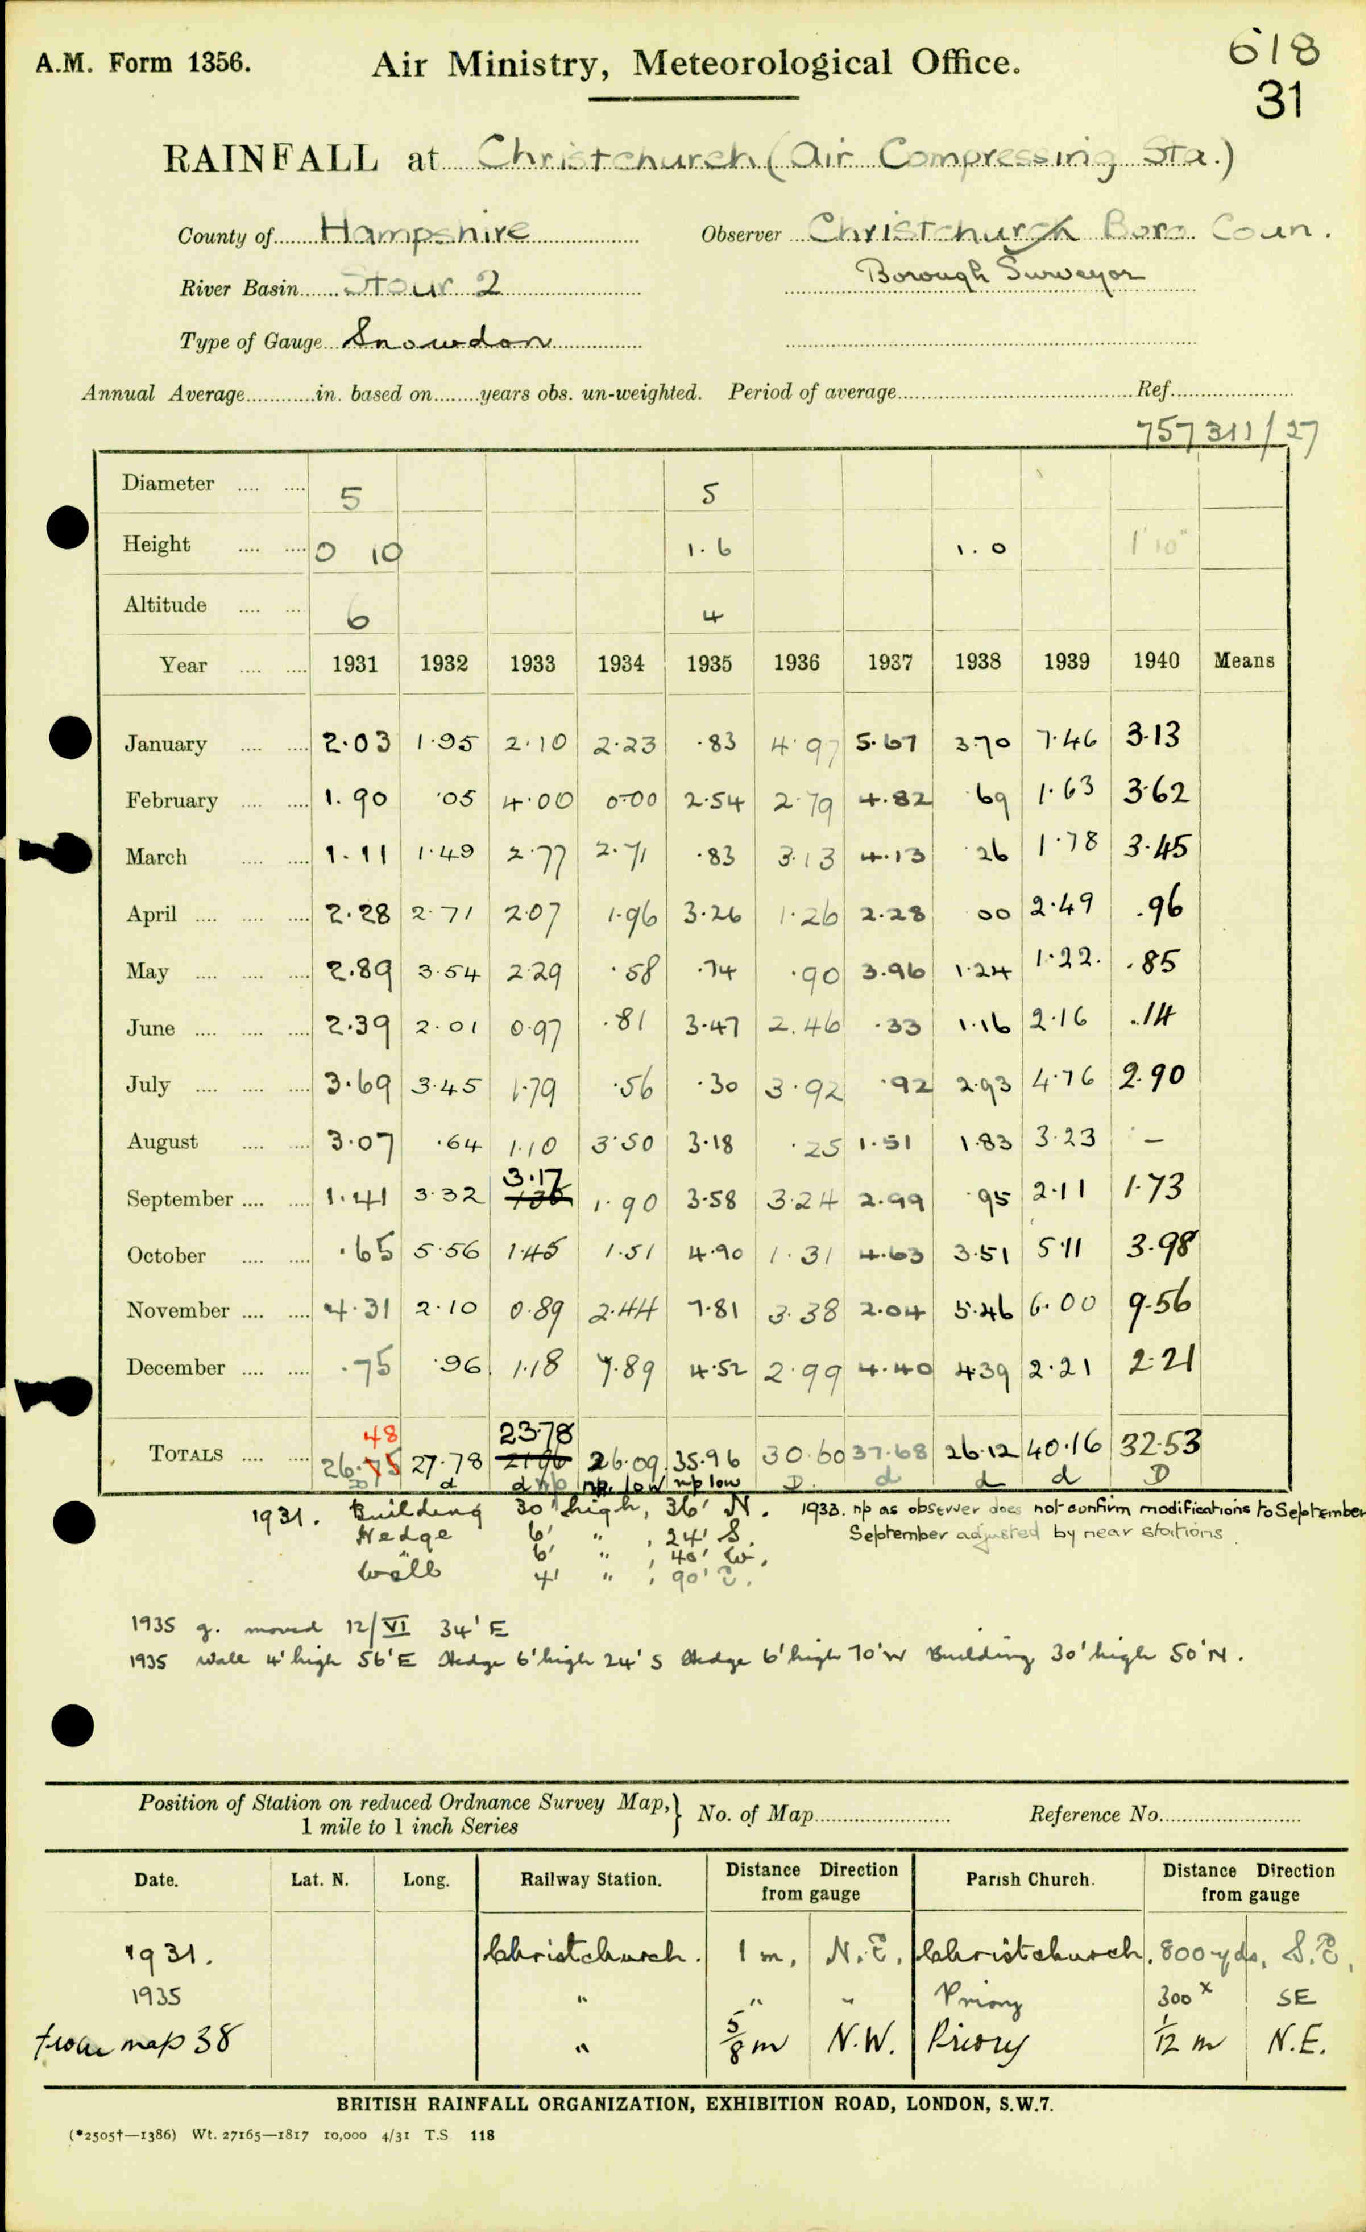 A.M. Form 1356. Air Ministry, Meteorological Office. 618
31
RAINFALL at Christchurch (Air Compressing Sta.)
County of Hampshire Observer Christchurch Boro Coun.
River Basin Stour 2 Borough Surveyor
Type of Gauge Snowdon
Annual Average in. based on years obs. un-weighted. Period of average Ref.
757311/27
Diameter 5 5
Height 0 10 1.6 1.0 1'10"
Altitude 6 4
Year 1931 1932 1933 1934 1935 1936 1937 1938 1939 1940 Means
January 2.03 1.95 2.10 2.23 .83 4.97 5.67 3.70 7.46 3.13
February 1.90 .05 4.00 0.00 2.54 2.79 4.82 .69 1.63 3.62
March 1.11 1.49 2.77 2.71 .83 3.13 4.13 .26 1.78 3.45
April 2.28 2.71 2.07 1.96 3.26 1.26 2.28 .00 2.49 .96
May 2.89 3.54 2.29 .58 .74 .90 3.96 1.24 1.22 .85
June 2.39 2.01 0.97 .81 3.47 2.46 .33 1.16 2.16 .14
July 3.69 3.45 1.79 .56 .30 3.92 .92 2.93 4.76 2.90
August 3.07 .64 1.10 3.50 3.18 .25 1.51 1.83 3.23 –
3.17
September 1.41 3.32 1.90 3.58 3.24 2.99 .95 2.11 1.73
October .65 5.56 1.45 1.51 4.90 1.31 4.63 3.51 5.11 3.98
November 4.31 2.10 0.89 2.44 7.81 3.38 2.04 5.46 6.00 9.56
December .75 .96 1.18 7.89 4.52 2.99 4.40 4.39 2.21 2.21
48 23.78
TOTALS 26.75 27.78 21.96 26.09 35.96 30.60 37.68 26.12 40.16 32.53
D d d np np. low np low D. d d d D
1931. Building 30' high, 36' N. 1933. np as observer does not confirm modifications to September
Hedge 6' " , 24' S. September adjusted by near stations.
" 6' " , 40' W.
Wall 4' " , 90' E.
1935 g. moved 12/VI 34' E
1935 Wall 4' high 56' E Hedge 6' high 24' S Hedge 6' high 70' W Building 30' high 50' N.
Position of Station on reduced Ordnance Survey Map, } No. of Map Reference No.
1 mile to 1 inch Series
Date. Lat. N. Long. Railway Station. Distance Direction from gauge Parish Church. Distance Direction from gauge
1931. Christchurch. 1 m, N.E. Christchurch. 800 yds, S.E.
1935 " " " Priory 300x SE
from map 38 " 5/8 m N.W. Priory 1/12 m N.E.
BRITISH RAINFALL ORGANIZATION, EXHIBITION ROAD, LONDON, S.W.7.
(*2505†—1386) Wt. 27165—1817 10,000 4/31 T.S 118